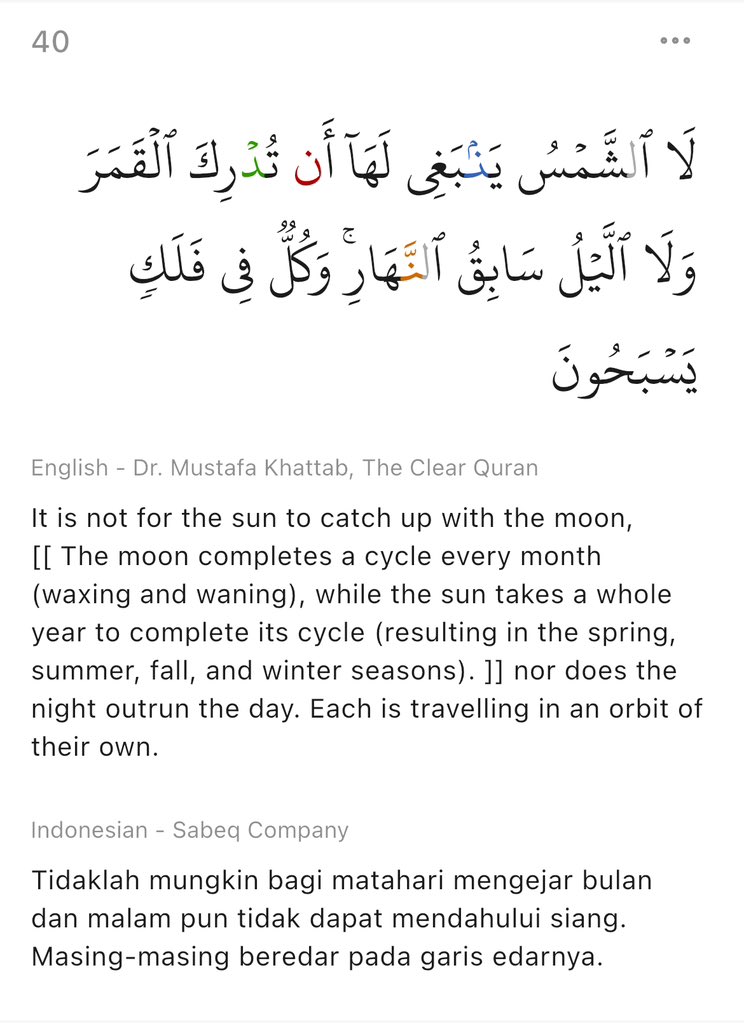 40
لَا ٱلشَّمۡسُ يَنۢبَغِى لَهَآ أَن تُدۡرِكَ ٱلۡقَمَرَ
وَلَا ٱلَّيۡلُ سَابِقُ ٱلنَّهَارِۚ وَكُلّٞ فِى فَلَكٖ
يَسۡبَحُونَ
English - Dr. Mustafa Khattab, The Clear Quran
It is not for the sun to catch up with the moon,
[[ The moon completes a cycle every month
(waxing and waning), while the sun takes a whole
year to complete its cycle (resulting in the spring,
summer, fall, and winter seasons). ]] nor does the
night outrun the day. Each is travelling in an orbit of
their own.
Indonesian - Sabeq Company
Tidaklah mungkin bagi matahari mengejar bulan
dan malam pun tidak dapat mendahului siang.
Masing-masing beredar pada garis edarnya.